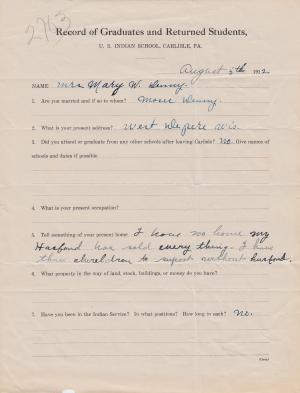 2763
Record of Graduates and Returned Students,
U. S. INDIAN SCHOOL, CARLISLE, PA.
August 5th 1912
NAME Mrs Mary W. Denny
1. Are you married and if so to whom? Moses Denny
2. What is your present address? West Depere Wis.
3. Did you attend or graduate from any other schools after leaving Carlisle? No. Give names of
schools and dates if possible
4. What is your present occupation?
5. Tell something of your present home. I have no home my
Husbond has sold every thing. I have
three to suport without husbond.
6. What property in the way of land, stock, buildings, or money do you have?
7. Have you been in the Indian Service? In what positions? How long in each? No.
(Over)